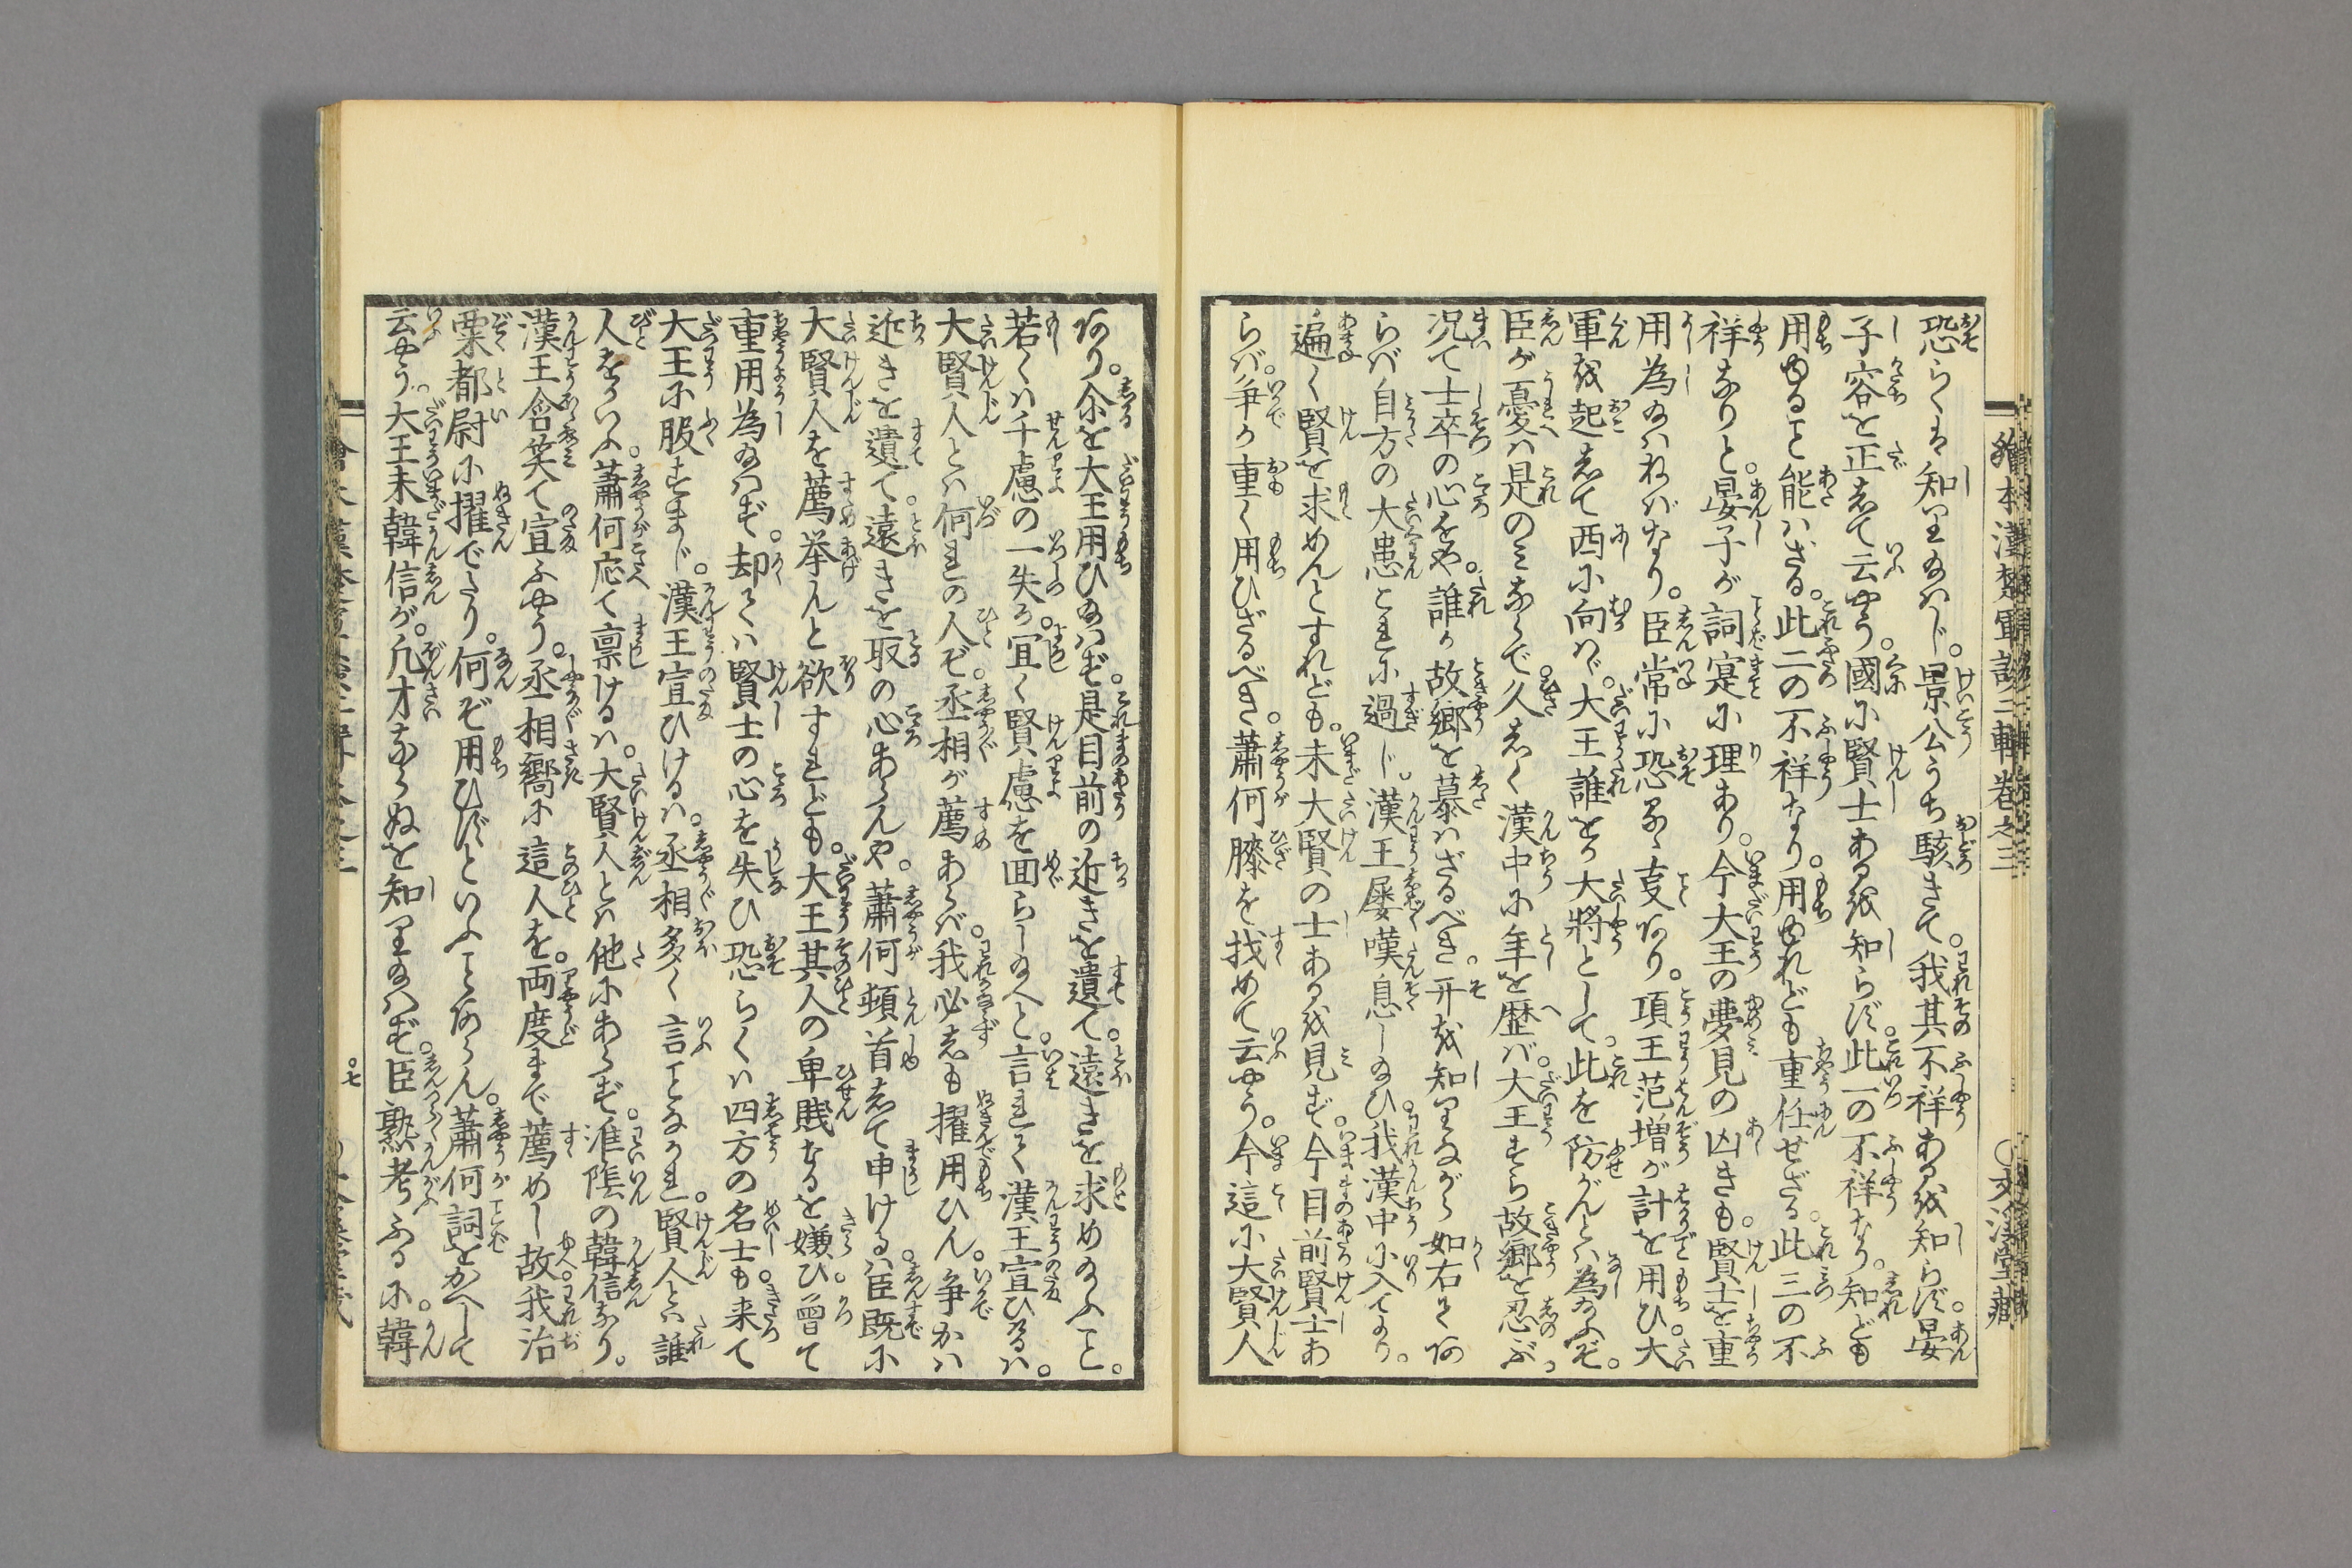 恐らくは知しめさじ。景公うち駭きて。我其不祥あるを知らず。晏
子容を正して云やう。國に賢士あるを知らず。此一の不祥なり。知ども
用ゆること能はざる。此二の不祥なり。用ゆれども重任せざる。此三の不
祥なりと。晏子が詞寔に理あり。今大王の夢見の凶きも。賢士を重
用為給はねばなり。臣常に恐るゝ支あり。項王范増が計を用ひ大
軍を起して西に向はゞ。大王誰をか大將として。此を防がんとは為給ふぞ。
臣が憂は是のみならで。久しく漢中に年を歴ば。大王すら故郷を忍ぶ。
况て士卒の心をや。誰か故郷を慕はざるべき。开を知りながら如右てあ
らば自方の大患これに過じ。漢王屡嘆息し給ひ。我漢中に入てより。
遍く賢を求めんとすれども。未大賢の士あるを見ず。今目前賢士あ
らば。争か重く用ひざるべき。蕭何膝を找めて云やう。今這に大賢人
繪本漢楚軍談二輯巻之三
○文溪堂藏
あり。尒を大王用ひ給はず。是目前の近きを遺て。遠きを求め給ふこと。
若くは千慮の一失か。冝く賢慮を回らし給へと。言れて漢王宣ひるは。
大賢人とは何れの人ぞ。丞相が薦あらば。我必しも擢用ひん。争かは
近きを遺て。遠きを取の心あらんや。蕭何頓首して申けるは。臣既に
大賢人を薦挙んと欲すれども。大王其人の卑賤なるを嫌ひ。曾て
重用為給はず。却ては賢士の心を失ひ恐らくは四方の名士も来て
大王に服すまじ。漢王宣ひけるは。丞相多く言ことなかれ。賢人とは誰
人をかいふ。蕭何応て禀けるは。大賢人とは他にあらず。淮陰の韓信なり。
漢王含笑て宣ふやう。丞相嚮に這人を。両度まで薦めし故。我治
粟都尉に擢でたり。何ぞ用ひずといふことあらん。蕭何詞をかへして
云やう。大王未韓信が。凡才ならぬを知り給はず。臣熟考ふるに。韓
○七